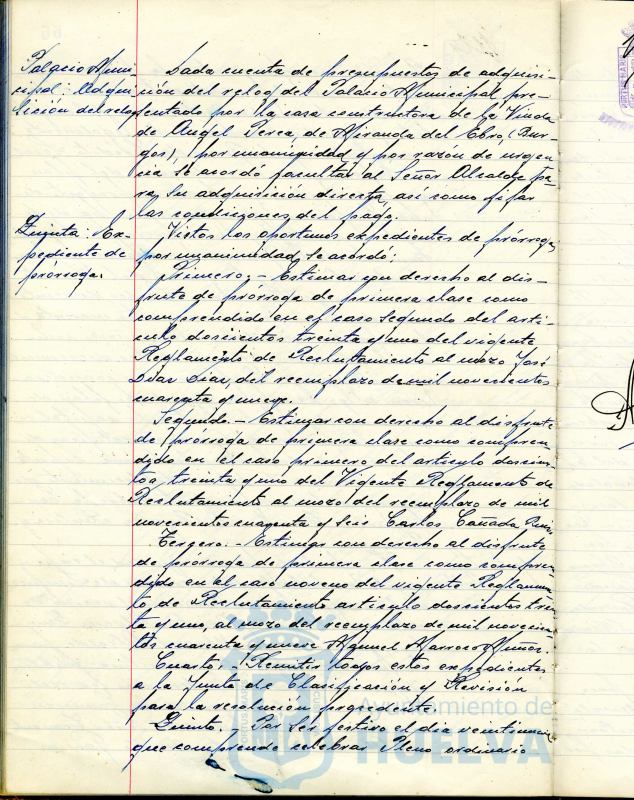 Palacio Muni-
cipal: Adqui
sición del reloj
Dada cuenta de presupuestos de adquisi-
ción del reloj del Palacio Municipal, pre-
sentado por la casa constructora de la Viuda
de Angel Perea, de Miranda del Ebro, (Bur-
gos), por unanimidad y por razón de urgen-
cia se acordó facultar al Señor Alcalde pa-
ra su adquisición directa, así como fijar
las condiciones del pago.
Quinta: Ex-
pediente de
prórroga.
Vistos los oportunos expedientes de prórroga,
por unanimidad, se acordó:
Primero.- Estimar con derecho al dis-
frute de prórroga de primera clase como
comprendido en el caso segundo del artí-
culo doscientos treinta y uno del vigente
Reglamento de Reclutamiento al mozo José
Díaz Díaz, del reemplazo de mil novecientos
cuarenta y nueve.
Segundo.- Estimar con derecho al disfrute
de prórroga de primera clase como compren
dido en el caso primero del artículo doscien-
tos treinta y uno del Vigente Reglamento de
Reclutamiento al mozo del reemplazo de mil
novecientos cuarenta y seis Carlos Cañada
Tercero.- Estimar con derecho al disfrute
de prórroga de primera clase como compren
dido en el caso noveno del vigente Reglamen-
to, de Reclutamiento artículo doscientos trein
ta y uno, al mozo del reemplazo de mil novecien
tos cuarenta y nueve Manuel Marroco Muñoz.
Cuarto.- Remitir todos estos expedientes
a la Junta de Clasificación y Revisión
para la resolución procedente.
Quinto.- Por ser festivo el día veintiuno
que comprende celebrar Pleno ordinario
Ayuntamiento de
HUELVA